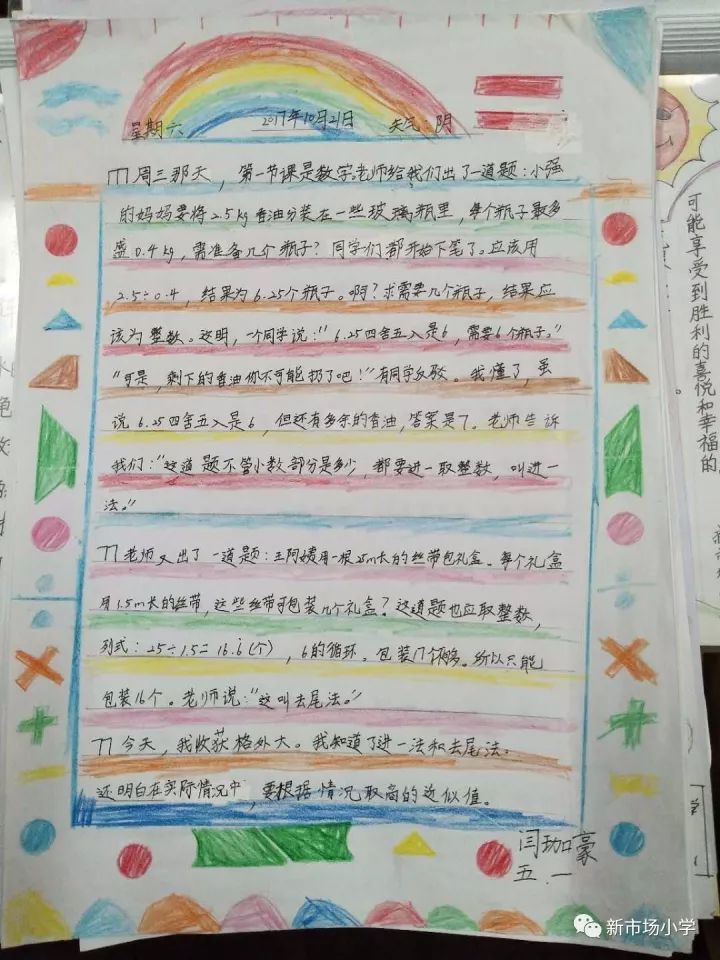 星期六 2017年10月21日 天气:阴
周三那天,第一节课是数学。老师给我们出了一道题:小强
的妈妈要将2.5kg香油分装在一些玻璃瓶里,每个瓶子最多
盛0.4kg,需准备几个瓶子?同学们都开始下笔了。应该用
2.5÷0.4,结果为6.25个瓶子。啊?求需要几个瓶子,结果应
该为整数。这明,一个同学说:"6.25四舍五入是6,需要6个瓶子。"
"可是,剩下的香油你不可能扔了吧!"有同学反驳。我懂了,虽
说6.25四舍五入是6,但还有多余的香油,答案是7。老师告诉
我们:"这道题不管小数部分是多少,都要进一取整数,叫进一
法。"
老师又出了一道题:王阿姨用一根25m长的丝带包礼盒。每个礼盒
用1.5m长的丝带,这些丝带可包装几个礼盒?这道题也应取整数,
列式:25÷1.5=16.6̇(个),6的循环。包装17个不够。所以只能
包装16个。老师说:"这叫去尾法。"
今天,我收获格外大。我知道了进一法和去尾法。
还明白在实际情况中,要根据情况取商的近似值。
闫珈豪
五.一
可能享受到胜利的喜悦和幸福的
。
新市场小学